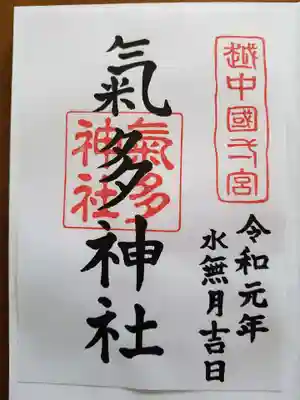 越中國弌宮
氣多神社
氣多
神社
令和元年
水無月吉日